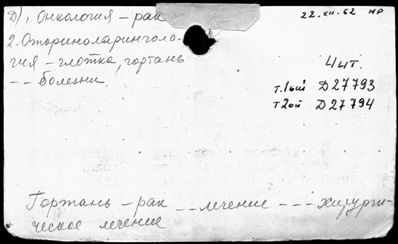 Д) 1. Онкология – рак
22.XII.62 НР
2. Оториноларинголо-
гия – глотка, гортань
– – болезни.
4 шт.
т.1ый Д27793
т.2ой Д27794
Гортань – рак – – лечение – – – хирурги-
ческое лечение